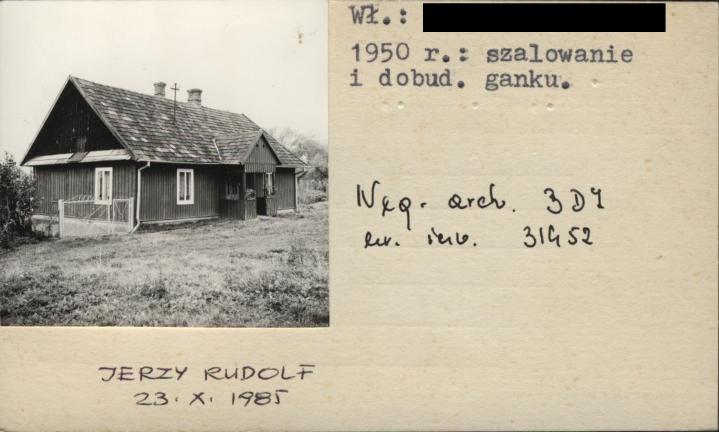 Wł.:
1950 r.: szalowanie
i dobud. ganku.
Neg. arch. 3D1
nr. inw. 31452
JERZY RUDOLF
23. X. 1985